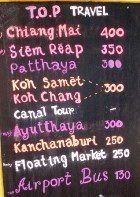 T.O.P TRAVEL
Chiang Mai 400
Siem Reap 350
Patthaya 300
Koh Samet
Koh Chang 300
canal Tour –
Ayutthaya 300
Kanchanaburi 250
Floating Market 250
Airport Bus 130